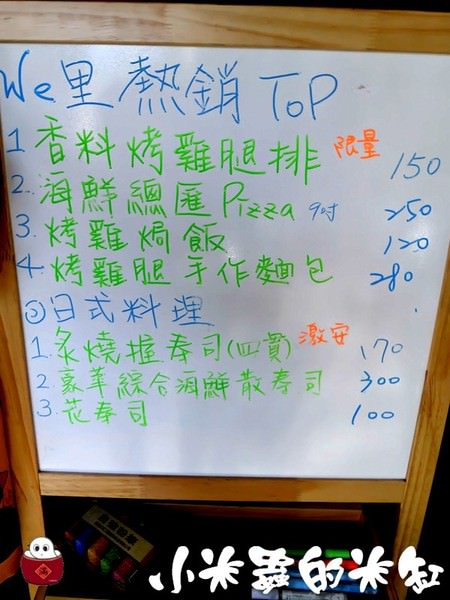 We里 熱銷 TOP
1 香料烤雞腿排 限量 150
2. 海鮮總匯Pizza 9吋 250
3. 烤雞焗飯 120
4. 烤雞腿手作麵包 280
◎日式料理
1. 炙燒握壽司(四貫) 激安 170
2. 豪華綜合海鮮散壽司 300
3. 花壽司 100
小米蟲的米缸